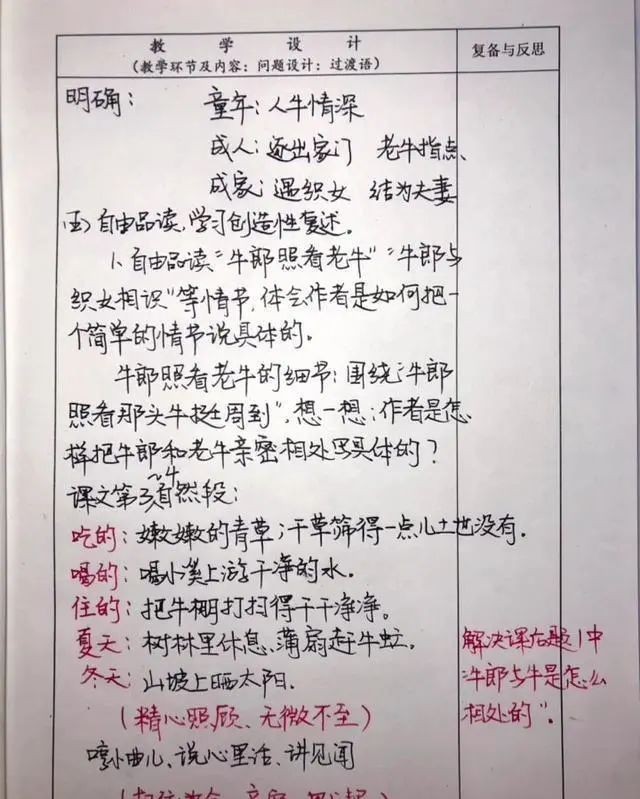 教 学 设 计
（教学环节及内容：问题设计：过渡语）
复备与反思
明确： 童年：人牛情深
成人：逐出家门 老牛指点
成家：遇织女 结为夫妻
(五)自由品读，学习创造性复述。
1、自由品读“牛郎照看老牛”“牛郎与
织女相识”等情节，体会作者是如何把一
个简单的情节说具体的。
牛郎照看老牛的细节：围绕“牛郎
照看那头牛挺周到”，想一想：作者是怎
样把牛郎和老牛亲密相处写具体的？
课文第3~4自然段：
吃的：嫩嫩的青草；干草筛得一点儿土也没有.
喝的：喝小溪上游干净的水.
住的：把牛棚打扫得干干净净。
夏天：树林里休息、蒲扇赶牛虻.
冬天：山坡上晒太阳.
（精心照顾、无微不至）
哼小曲儿、说心里话、讲见闻
解决课后题1中
“牛郎与牛是怎么
相处的”.